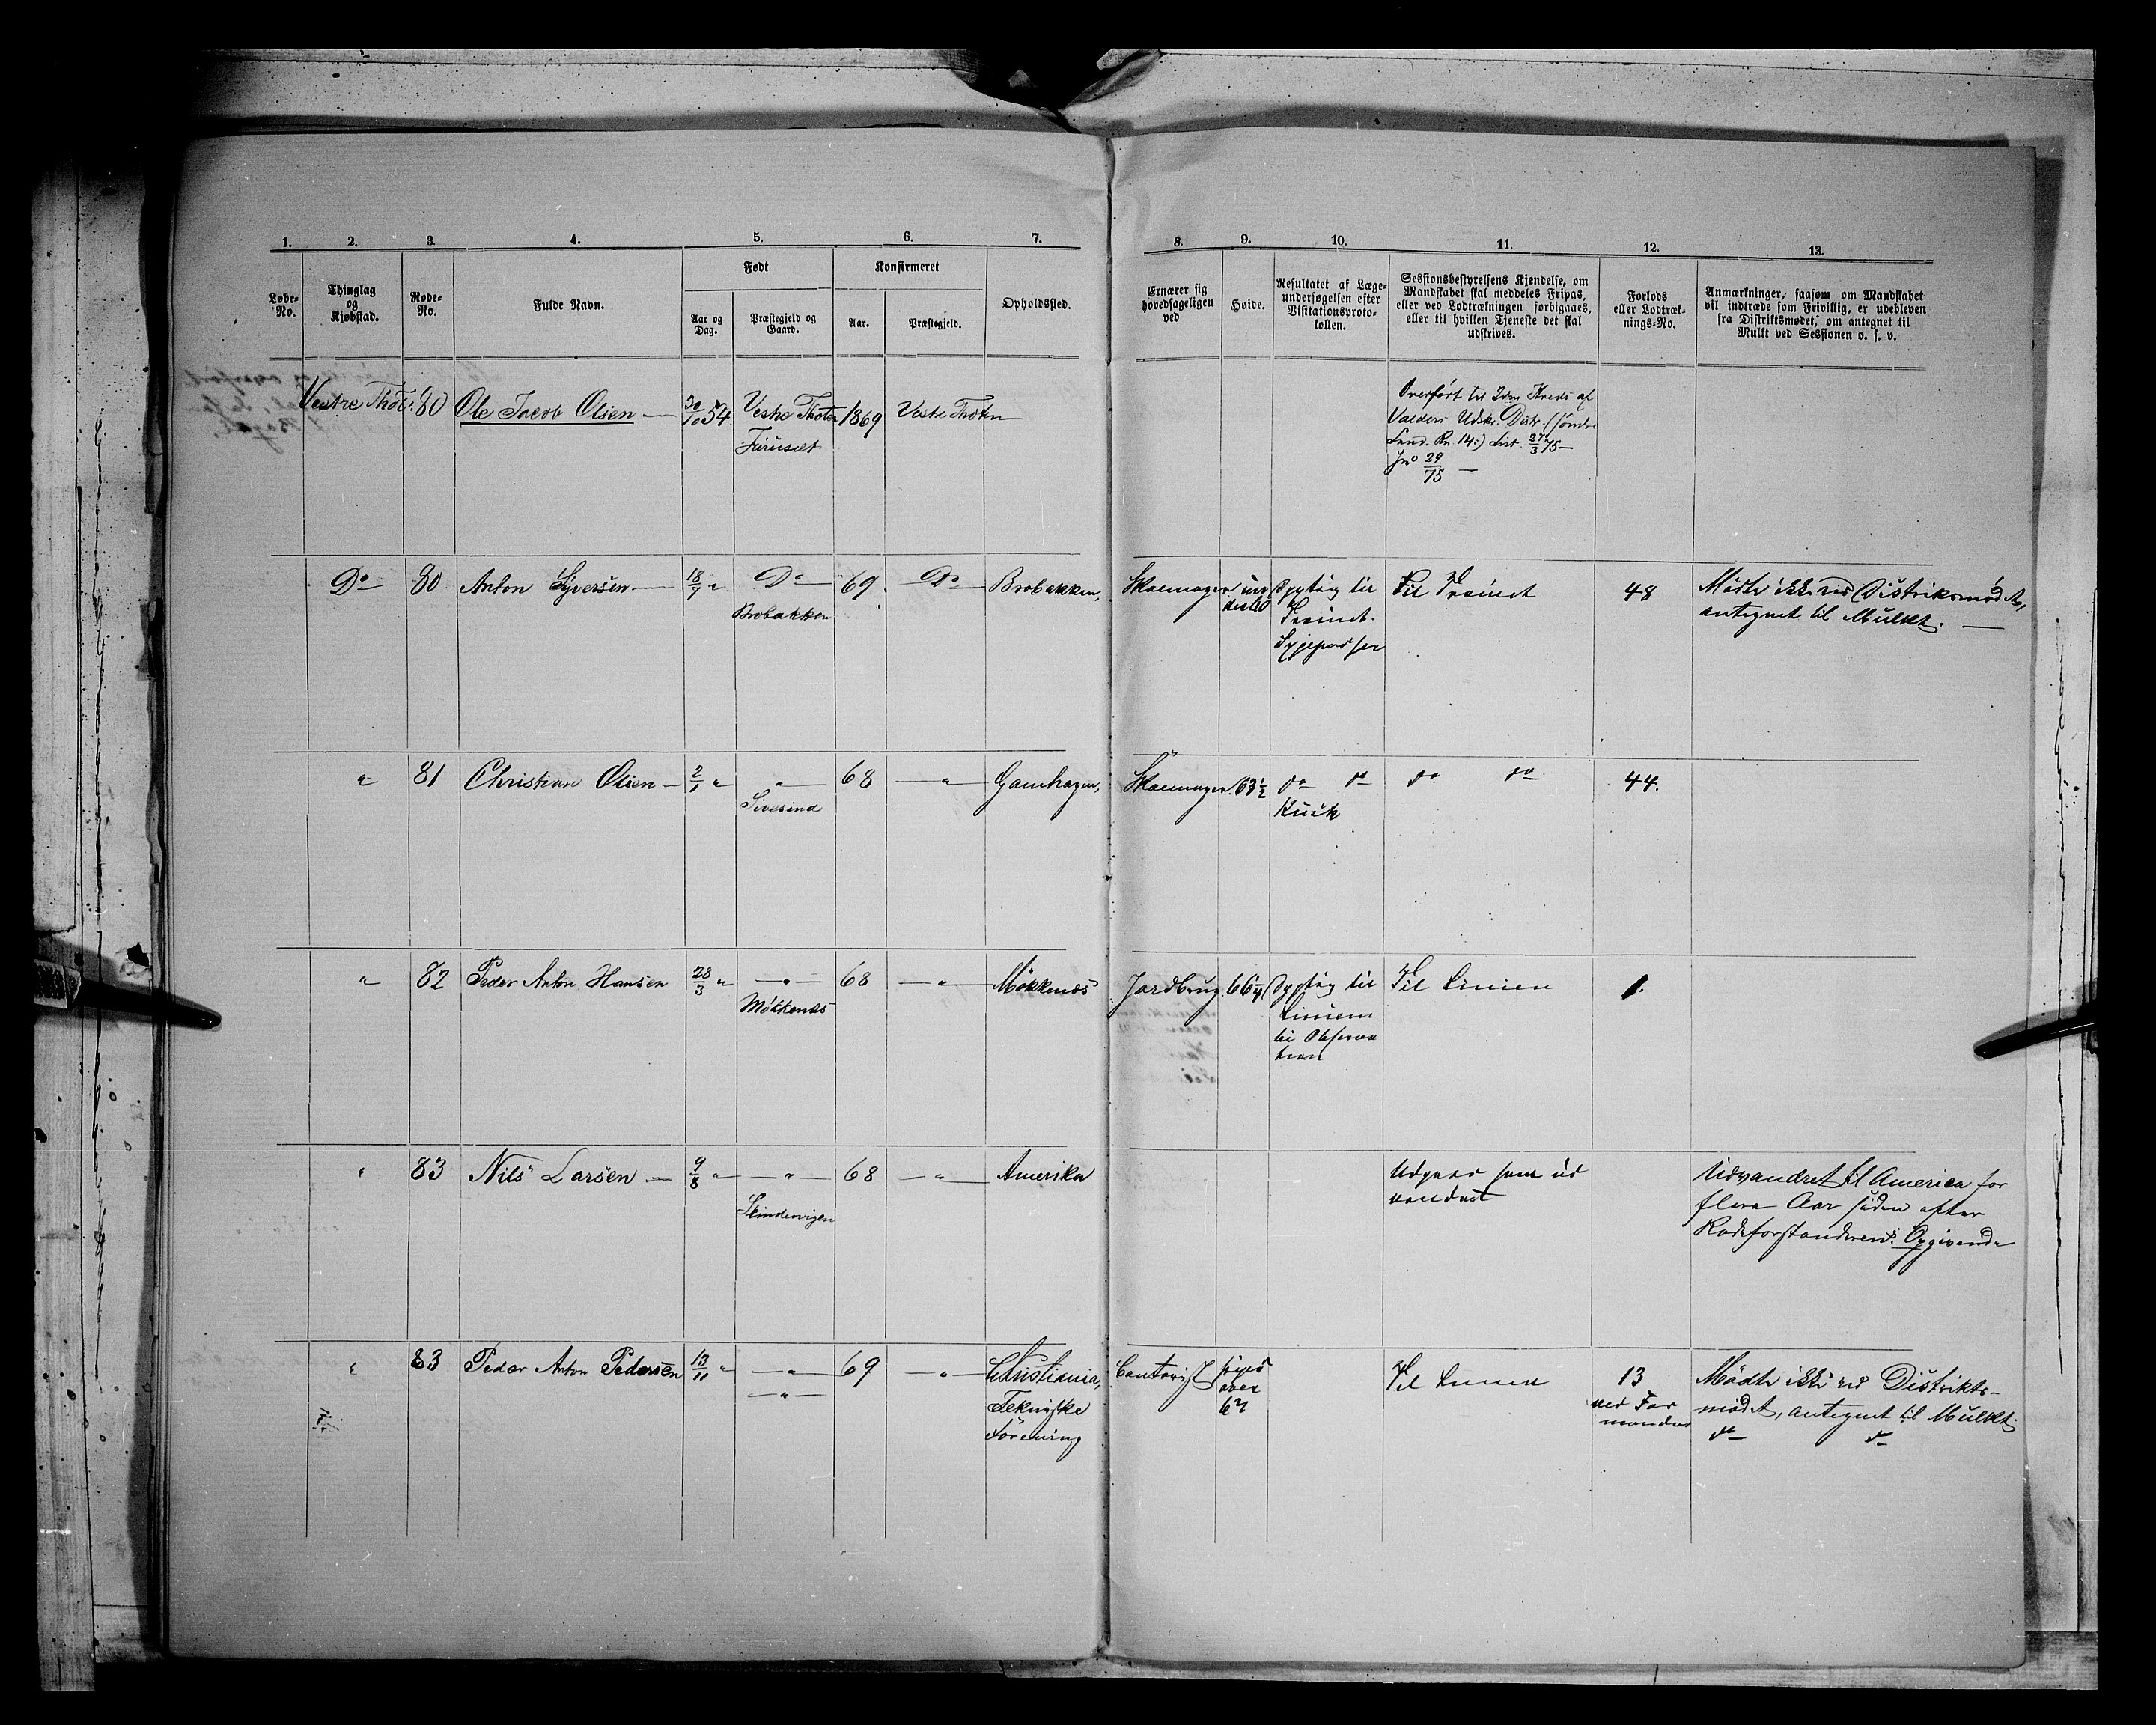 1. 2. 3. 4. 5. 6. 7.
Løbe-No.
Thinglag og Kjøbstad.
Rode-No.
Fulde Navn.
Født
Aar og Dag.
Præstegjeld og Gaard.
Konfirmeret
Aar.
Præstegjeld.
Opholdssted.
8. 9. 10. 11. 12. 13.
Ernærer sig hovedsageligen ved
Høide.
Resultatet af Lægeundersøgelsen efter Visitationsprotokollen.
Sessionsbestyrelsens Kjendelse, om Mandskabet skal meddeles Fripas, eller ved Lodtrækningen forbigaaes, eller til hvilken Tjeneste det skal udskrives.
Forlods eller Lodtræknings-No.
Anmærkninger, saasom om Mandskabet vil indtræde som Frivillig, er udebleven fra Distriktsmødet, om antegnet til Mulkt ved Sessionen o. s. v.
Vestre Thot: 80 Ole Jacob Olsen — 20/10 54 Vestre Thoten 1869 Vestre Thoten
Overført til 2den Kreds af
Valders Udskr. Distr. (Søndre
Land. Rn. 14:) List. 27/3 75 —
Jno 29/75 —
Do 80 Anton Syversen — 18/7 " Do 69 Do Brobakken,
Brobakken
Skoemager under 60 Dygtig til Trainet. Sygepasser
Til Trainet 48
Mødte ikke ved Distriktsmødet,
antegnet til Mulkt. —
" 81 Christian Olsen — 2/1 " " 68 " Gamhagen,
Sivesind
Skoemager. 63 1/2 do do Kusk
do do 44.
" 82 Peder Anton Hansen 28/3 " " 68 " Møkkenæs
Møkkenæs
Jordbrug. 66 1/4 Dygtig til Linien til Observation
Til Linien 1.
" 83 Nils Larsen — 9/8 " " 68 " Amerika
Udgaar som udvandret
Udvandret til America for
flere Aar siden efter
Rodeforstanderens Opgivende
" 83 Peder Anton Pedersen 13/11 " " 69 " Christiania,
"
Tekniske
Forening
siges
over
67
Til Linien 13
ved Formanden
Mødte ikke ved Distrikts-
mødet, antegnet til Mulkt.
do do